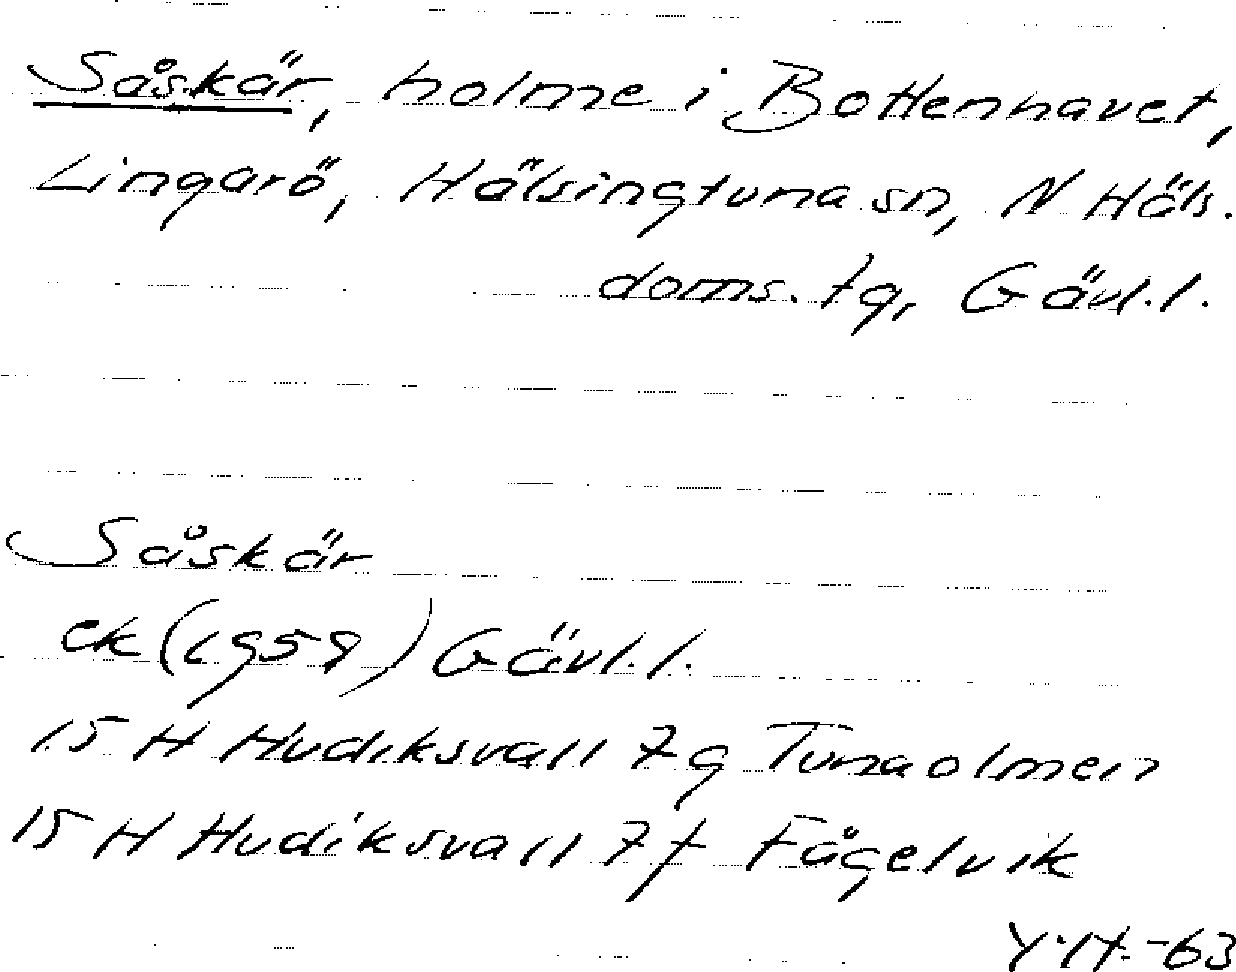 Såskär, holme i Bottenhavet,
Lingarö, Hälsingtuna sn, N Häls.
doms. tg, Gävl.l.
Såskär
ek (1959) Gävl.l.
15 H Hudiksvall 7g Tunaolmen
15 H Hudiksvall 7f Fågelvik
Y.H. -63